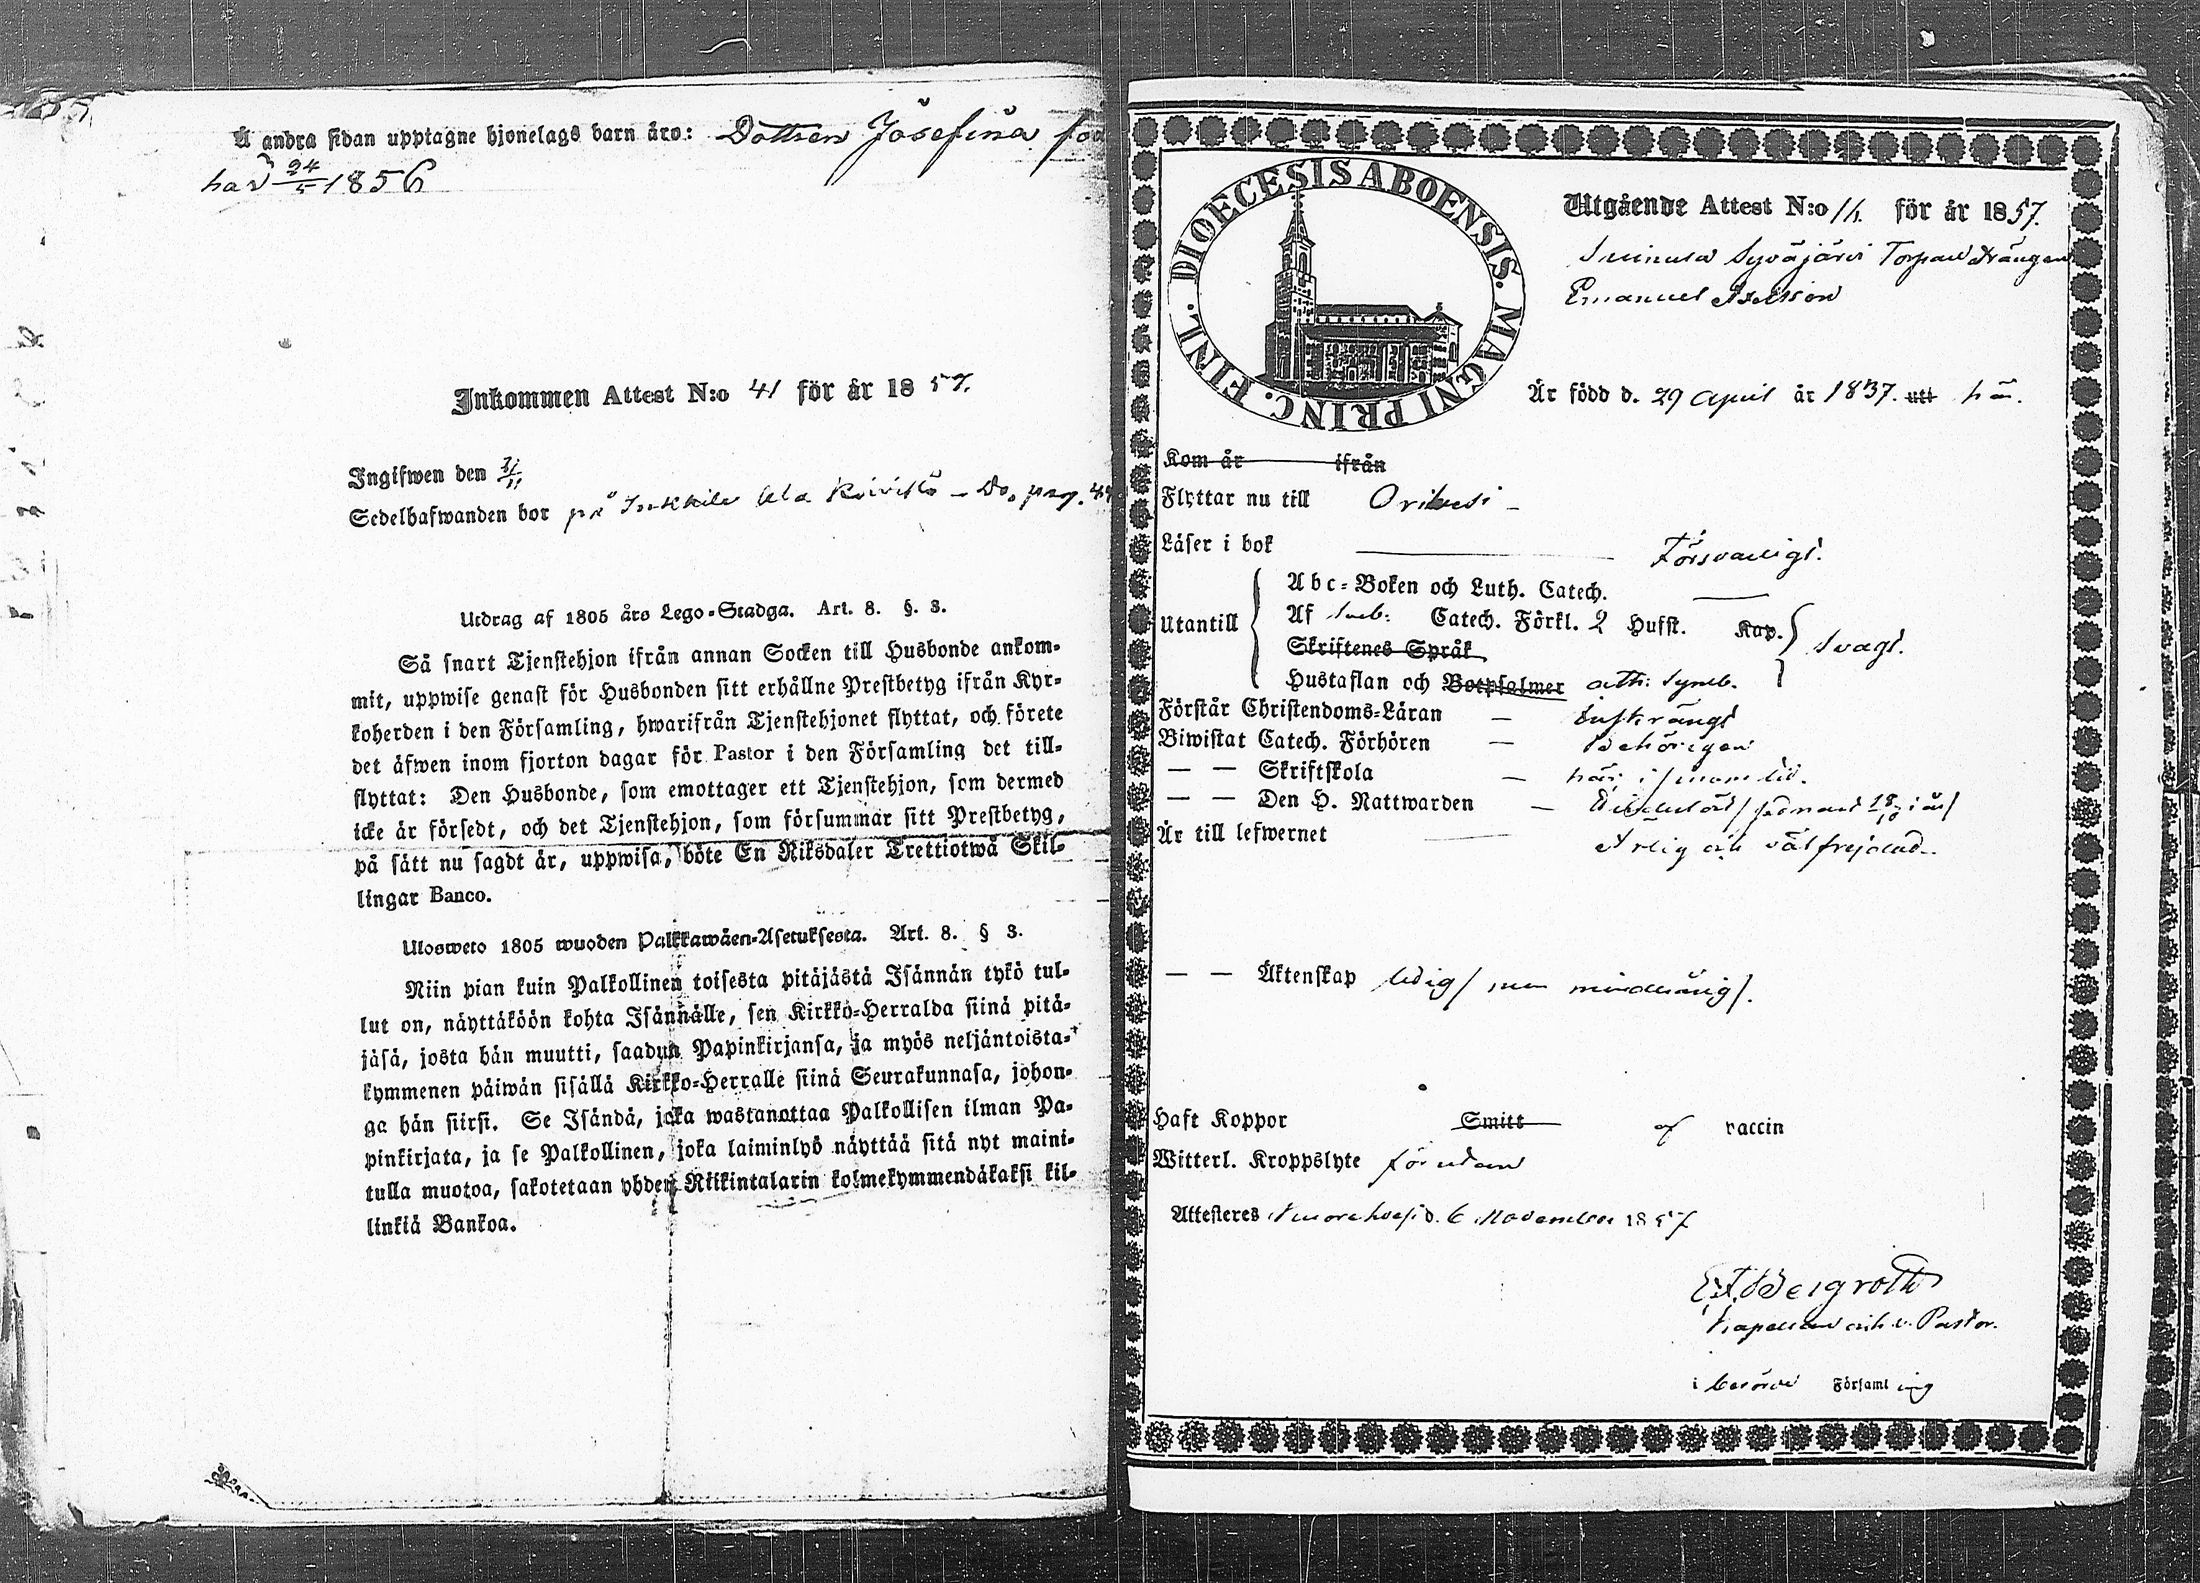 Å andra sidan upptagne hjonelags barn äro: Dottren Josefina
här 24/5 1856
Inkommen Attest N:o 41 för år 1857.
Ingifwen den
Sedelhafwanden bor på
Utdrag af 1805 års Lego-Stadga. Art. 8. §. 3.
Så snart Tjenstehjon ifrån annan Socken till Husbonde ankom-
mit, uppwise genast för Husbonden sitt erhållne Prestbetyg ifrån Kyr-
koherden i den Församling, hwarifrån Tjenstehjonet flyttat, och förete
det äfwen inom fjorton dagar för Pastor i den Församling det till-
flyttat: Den Husbonde, som emottager ett Tjenstehjon, som dermed
icke är försedt, och det Tjenstehjon, som försummar sitt Prestbetyg,
på sätt nu sagdt är, uppwisa, böte En Riksdaler Trettiotwå Skil-
lingar Banco.
Ulosweto 1805 wuoden Palkkawäen-Asetuksesta. Art. 8. § 3.
Niin pian kuin Palkollinen toisesta pitäjästä Isännän tykö tul-
lut on, näyttäköön kohta Isännälle, sen Kirkko-Herralda siinä pitä-
jäsä, josta hän muutti, saadun Papinkirjansa, ja myös neljäntoista-
kymmenen päiwän sisällä Kirkko-Herralle siinä Seurakunnasa, johon-
ga hän siirsi. Se Isändä, joka wastanottaa Palkollisen ilman Pa-
pinkirjata, ja se Palkollinen, joka laiminlyö näyttää sitä nyt maini-
tulla muotoa, sakotetaan yhden Riikintalarin kolmekymmendäkaksi kil-
linkiä Bankoa.
DIOECESIS ABOENSIS. MAGNI PRINC. FINL.
Utgående Attest N:o för år 1857.
Syväjärvi Torpare drängen
Emanuel
Är född d. 29 April år 1837. utt här.
Kom år ifrån
Flyttar nu till Orihvesi
Läser i bok Försvarligt.
Utantill Abc-Boken och Luth. Catech.
Af Sveb: Catech. Förkl. 2 Hufst. Kap. Svagt.
Skriftenes Språk
Hustaflan och Botpsalmer ath: Symb.
Förstår Christendoms-Läran Inskrängt
Biwistat Catech. Förhören Behörigen
— — Skriftskola här i sinom tid.
— — Den H. Nattwarden i år/
Är till lefwernet Ärlig och välfrejdad.
— — Äktenskap ledig/ men minderårig/.
Haft Koppor Smitt af vaccin
Witterl. Kroppslyte förutan
Attesteres d. 6 November 1857
Bergroth
Kapellan och v. Pastor.
i berörde Församling